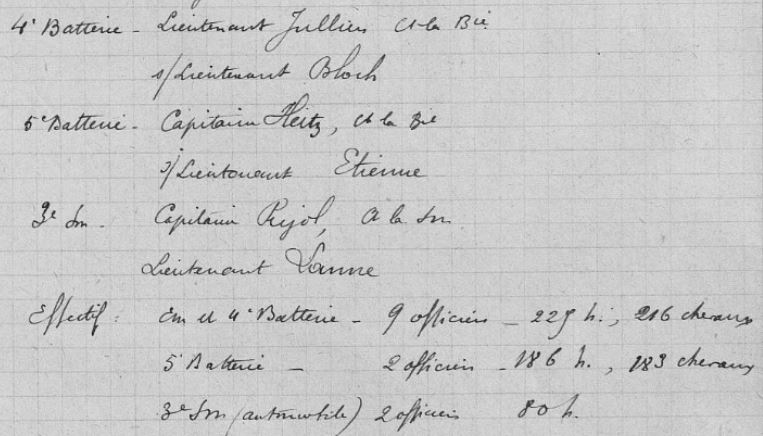 4e Batterie - Lieutenant Jullien Ct la Bie
s/Lieutenant Bloch
5e Batterie - Capitaine Heitz, Ct la Bie
s/Lieutenant Etienne
3e Son - Capitaine Pujol, Ct la Son
Lieutenant Lanne
Effectif: Em et 4e Batterie - 9 officiers - 225 h., 216 chevaux
5e Batterie - 2 officiers - 186 h., 183 chevaux
3e Son (automobile) 2 officiers 80 h.